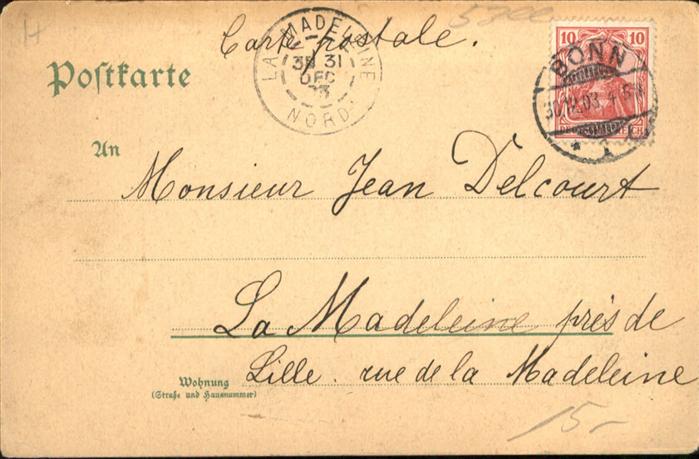 H
Carte postale.
5300
Postkarte
LA MADELEINE
3E 31
DEC
03
NORD
10 10
DEUTSCHES REICH
BONN
30.12.03. 4-5N
* 1
An
Monsieur Jean Delcourt
La Madeleine près de
Wohnung
(Straße und Hausnummer)
Lille. rue de la Madeleine
15,-